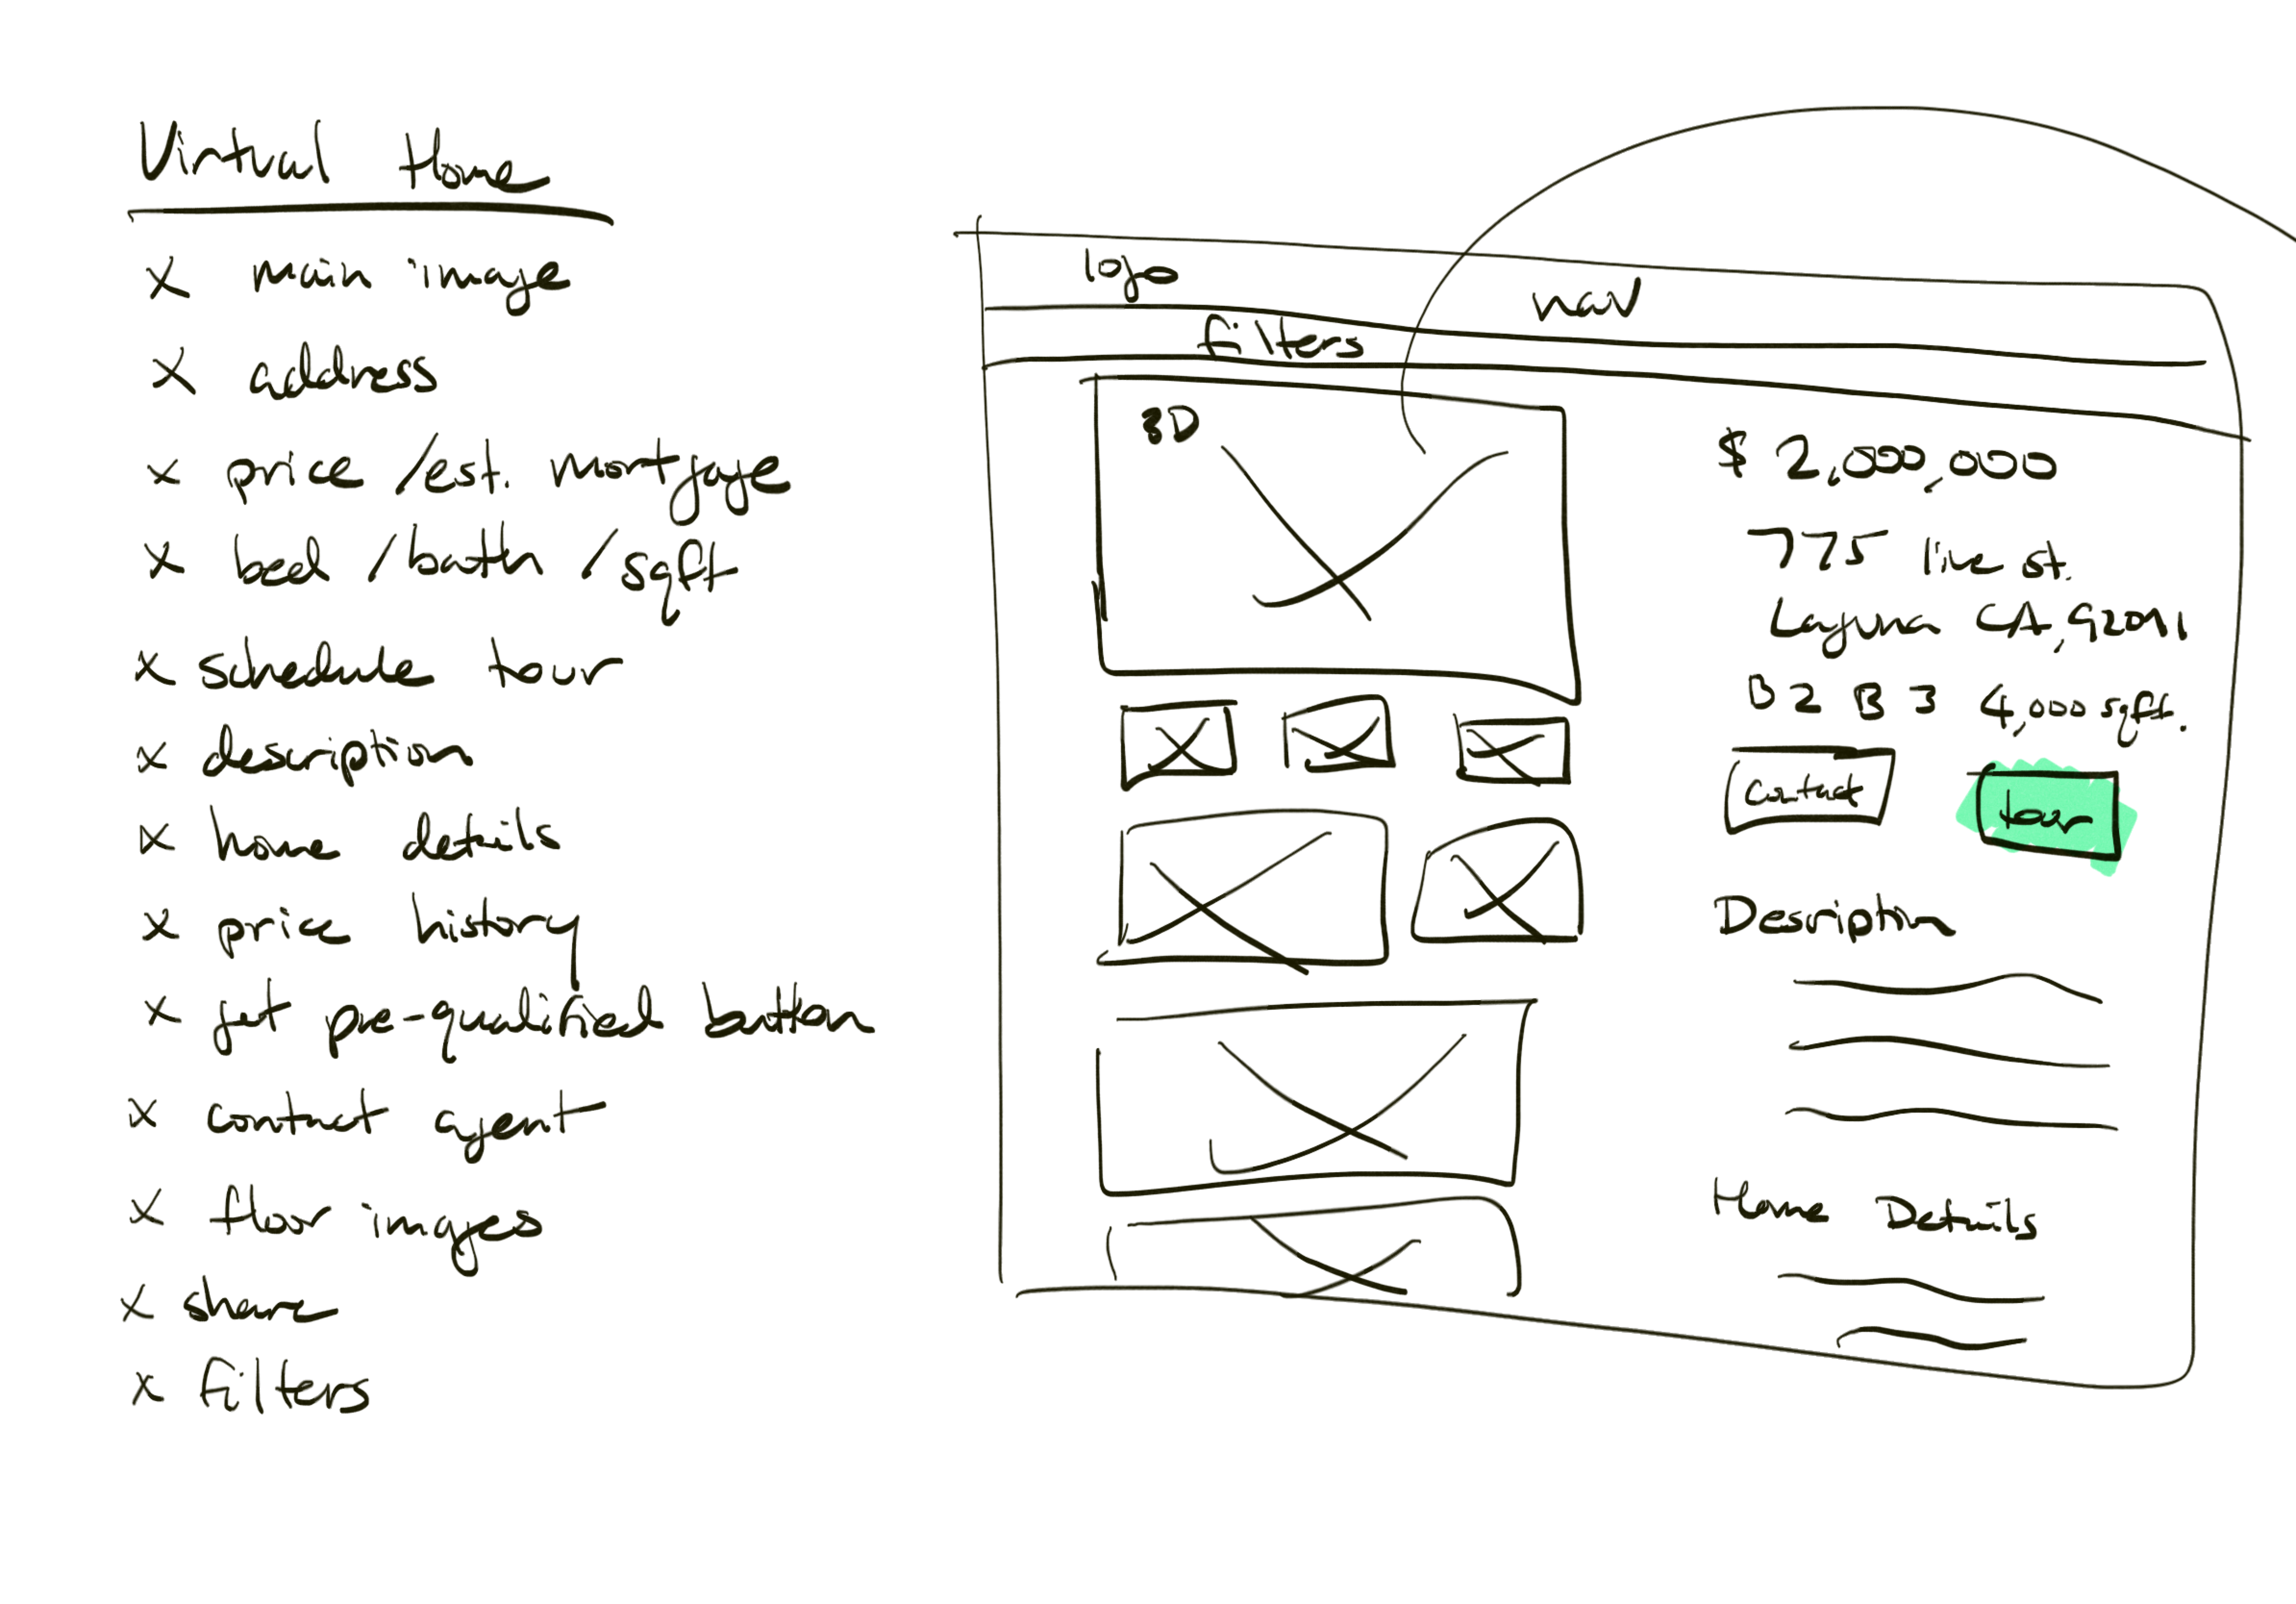 Virtual Home
x main image
x address
x price /est. mortgage
x bed /bath /sqft
x schedule tour
x description
x home details
x price history
x get pre-qualified button
x contact agent
x floor images
x share
x filters
logo
nav
filters
3D
$ 2,000,000
775 live st.
Laguna CA,
B 2 B 3 4,000 sqft.
Contact
tour
Description
Home Details